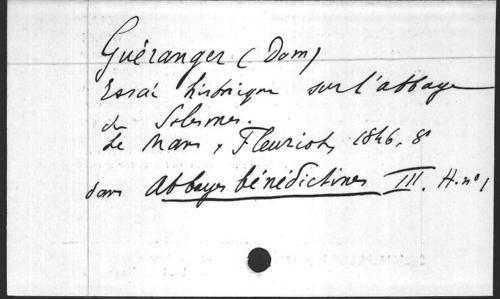 Guéranger (Dom)
Essai historique sur l'abbaye
de Solesmes.
Le Mans, Fleuriot, 1846, 8°
dans Abbayes bénédictines III. H. n° 1